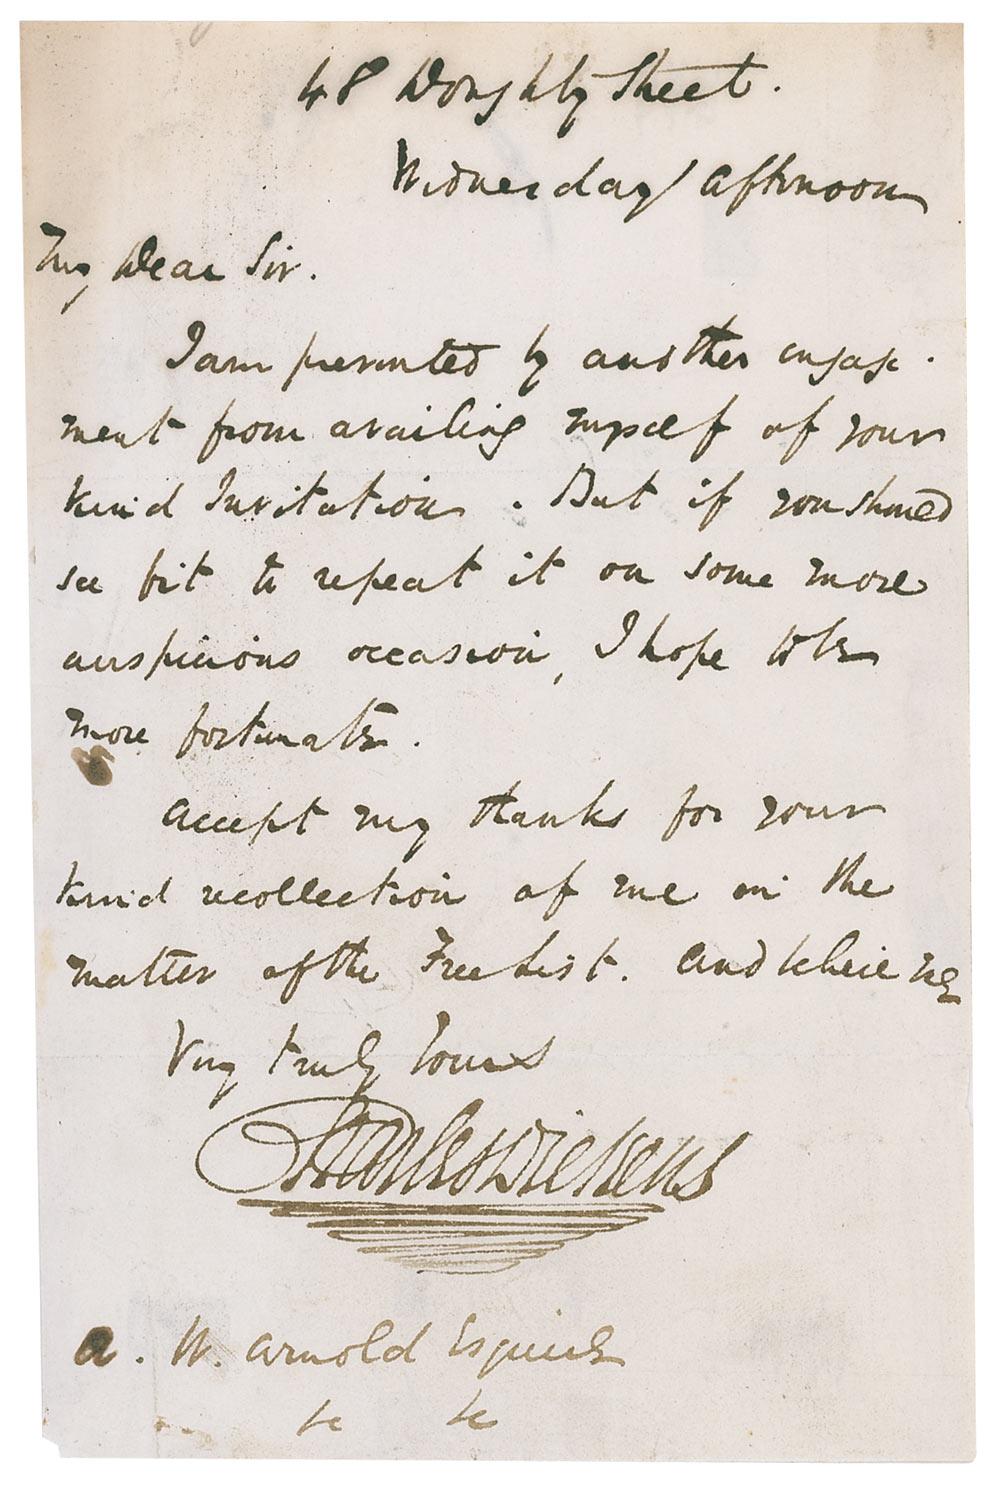 48 Doughty Street.
Wednesday afternoon
My Dear Sir.
I am prevented by another engage-
ment from availing myself of your
kind Invitation. But if you should
see fit to repeat it on some more
auspicious occasion, I hope to be
more fortunate.
Accept my thanks for your
kind recollection of me in the
matter of the Free List. And believe me
Very truly Yours
Charles Dickens
A. W. Arnold Esquire
&c &c